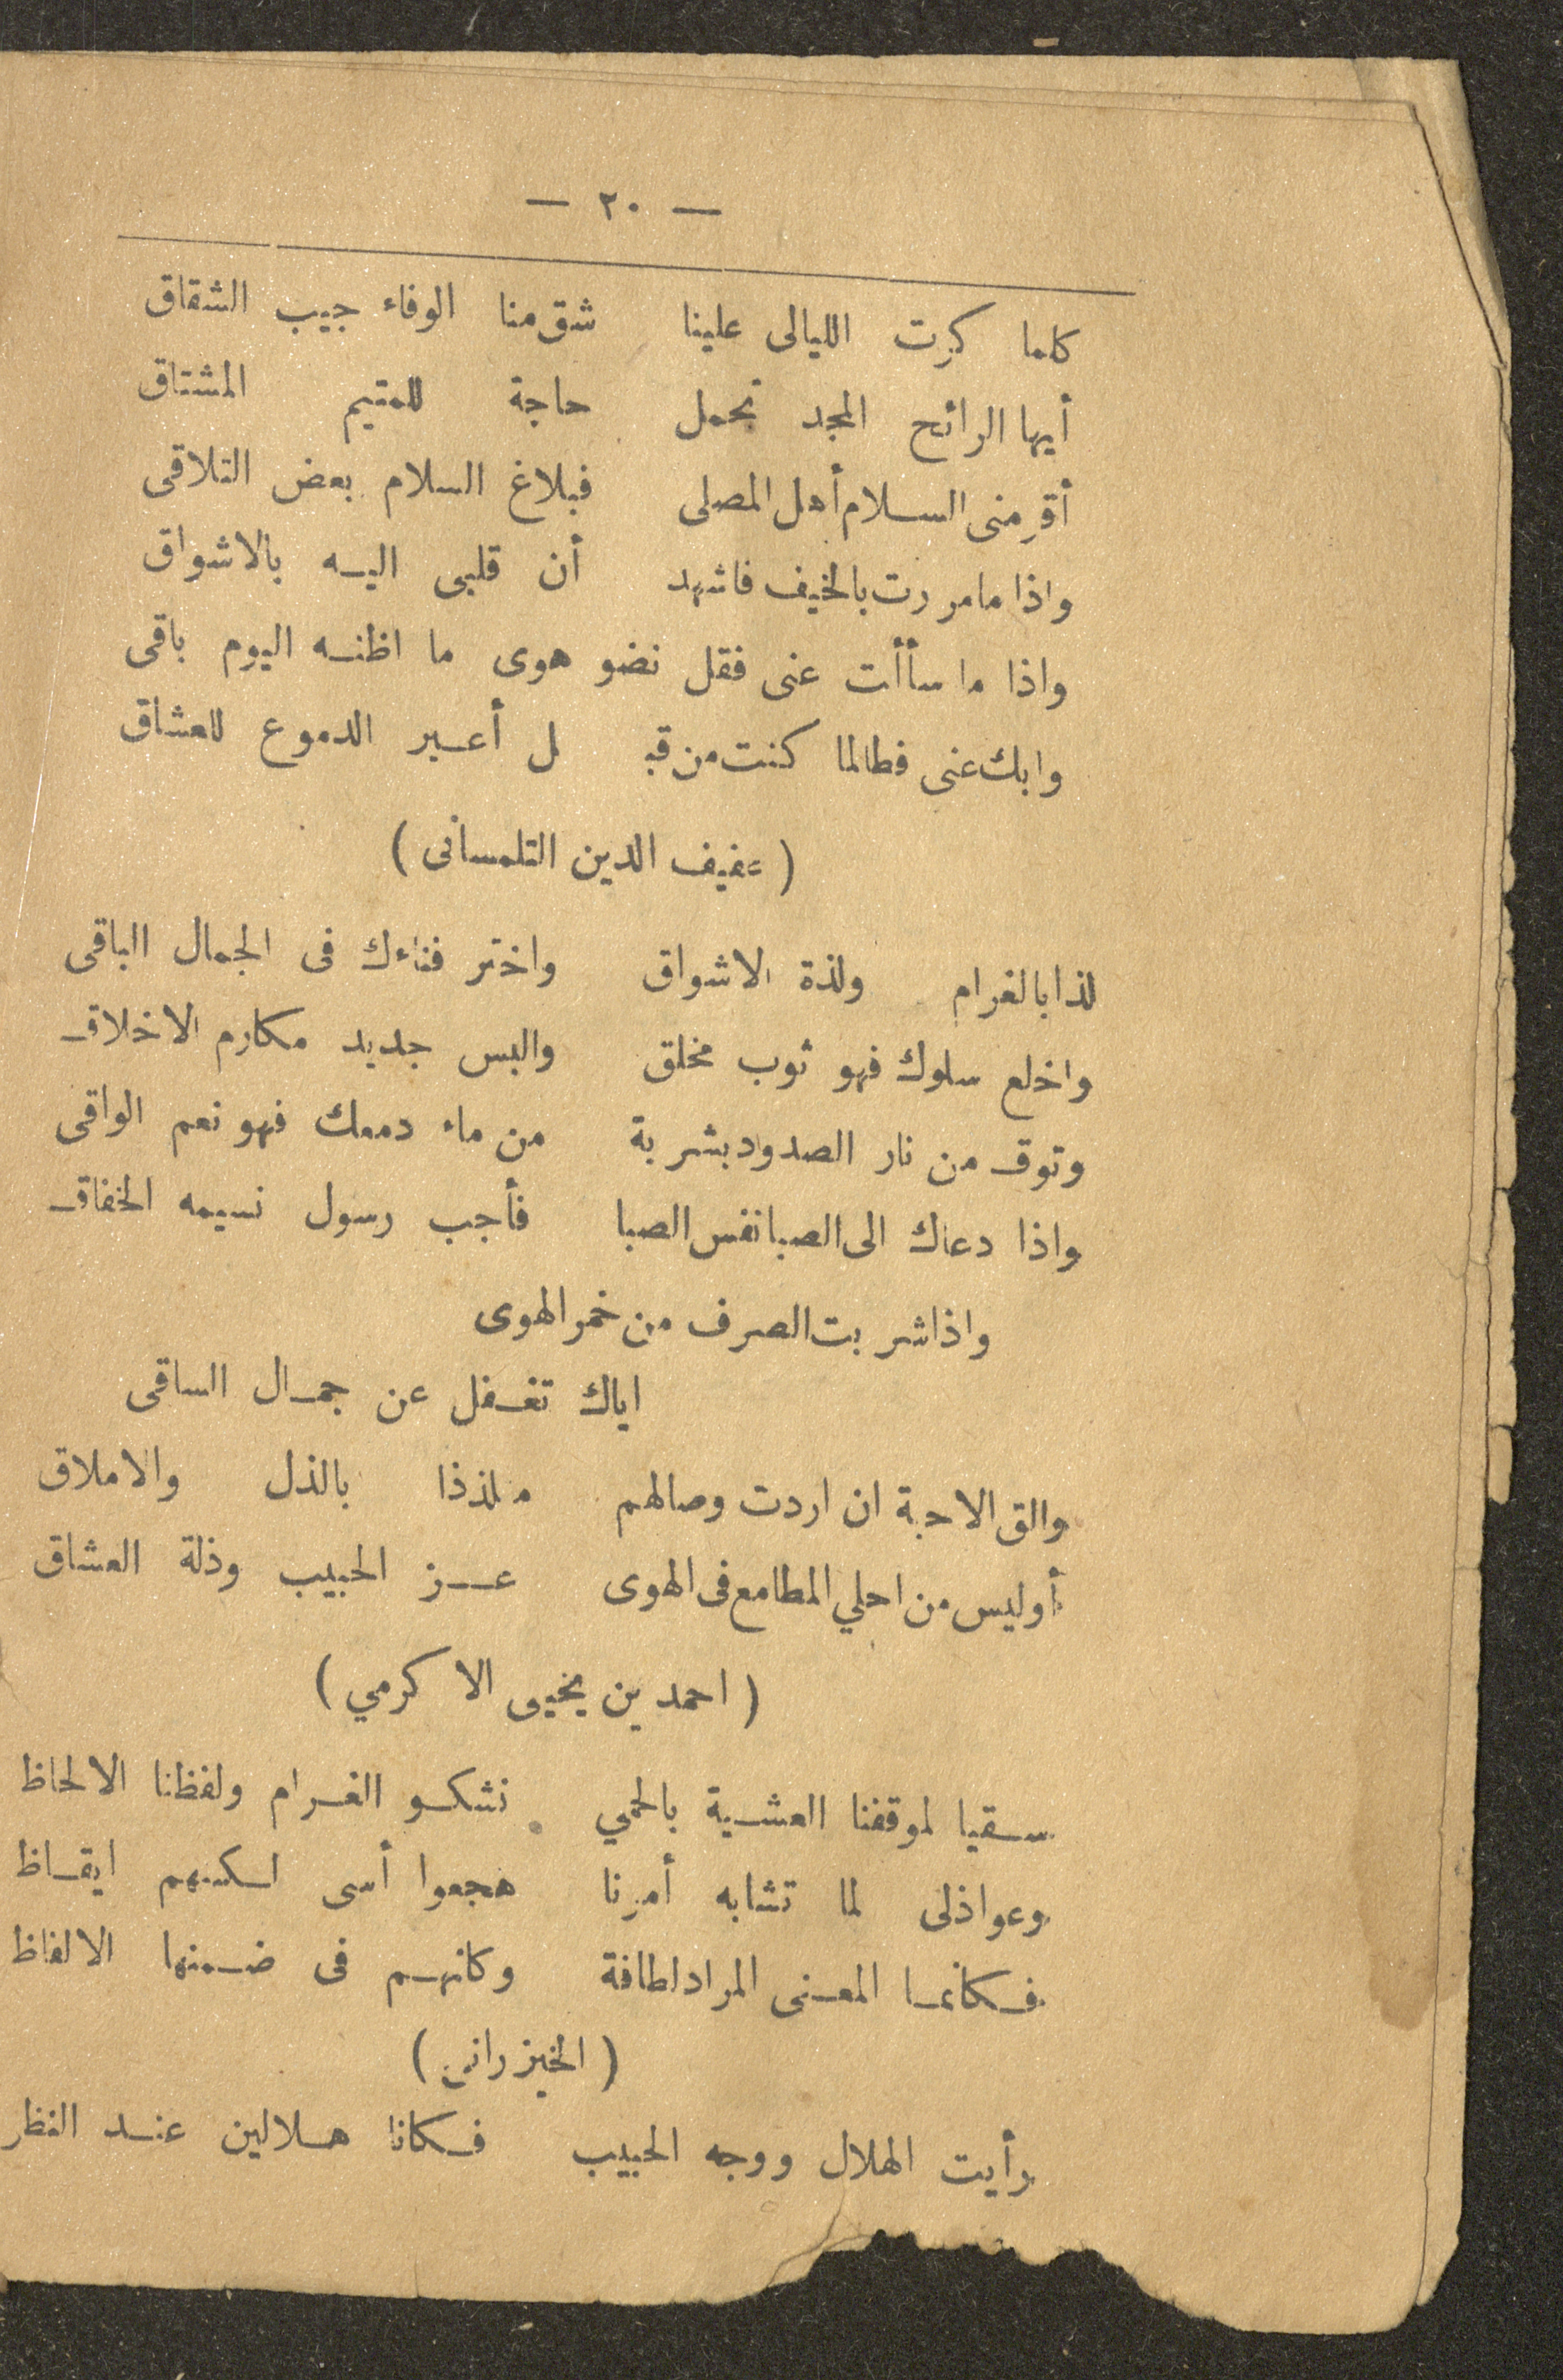 — ٢٠ —
كلما كرت الليالى علينا شق منا الوفاء جيب الشقاق
أيها الرائح المجد تحمل حاجة للمتيم المشتاق
أقرِ منى السلام أهل المصلى فبلاغ السلام بعض التلاقى
واذا مامررت بالخيف فاشهد أن قلبى اليه بالاشواق
واذا ما سألت عنى فقل نضو هوى ما اظنه اليوم باقى
وابك عنى فطالما كنت من قبـ ل أعير الدموع للعشاق
( عفيف الدين التلمسانى )
لذا بالغرام ولذة الاشواق واختر فناءك فى الجمال الباقى
واخلع سلوك فهو ثوب مخلق والبس جديد مكارم الاخلاق
وتوق من نار الصدود بشربة من ماء دمعك فهو نعم الواقى
واذا دعاك الى الصبا نفس الصبا فأجب رسول نسيمه الخفاق
واذا شربت الصرف من خمر الهوى
اياك تغفل عن جمال الساقى
والق الاحبة ان اردت وصالهم ملذذا بالذل والاملاق
أوليس من احلي المطامع فى الهوى عز الحبيب وذلة العشاق
( احمد بن يخيى الاكرمي )
سقيا لموقفنا العشية بالحمي نشكو الغرام ولفظنا الالحاظ
وعواذلى لما تشابه أمرنا هجعوا أسى لكنهم ايقاظ
فكأنما المعنى المراد لطافة وكانهم فى ضمنها الالفاظ
( الخيزرانى )
رأيت الهلال ووجه الحبيب فكانا هلالين عند النظر